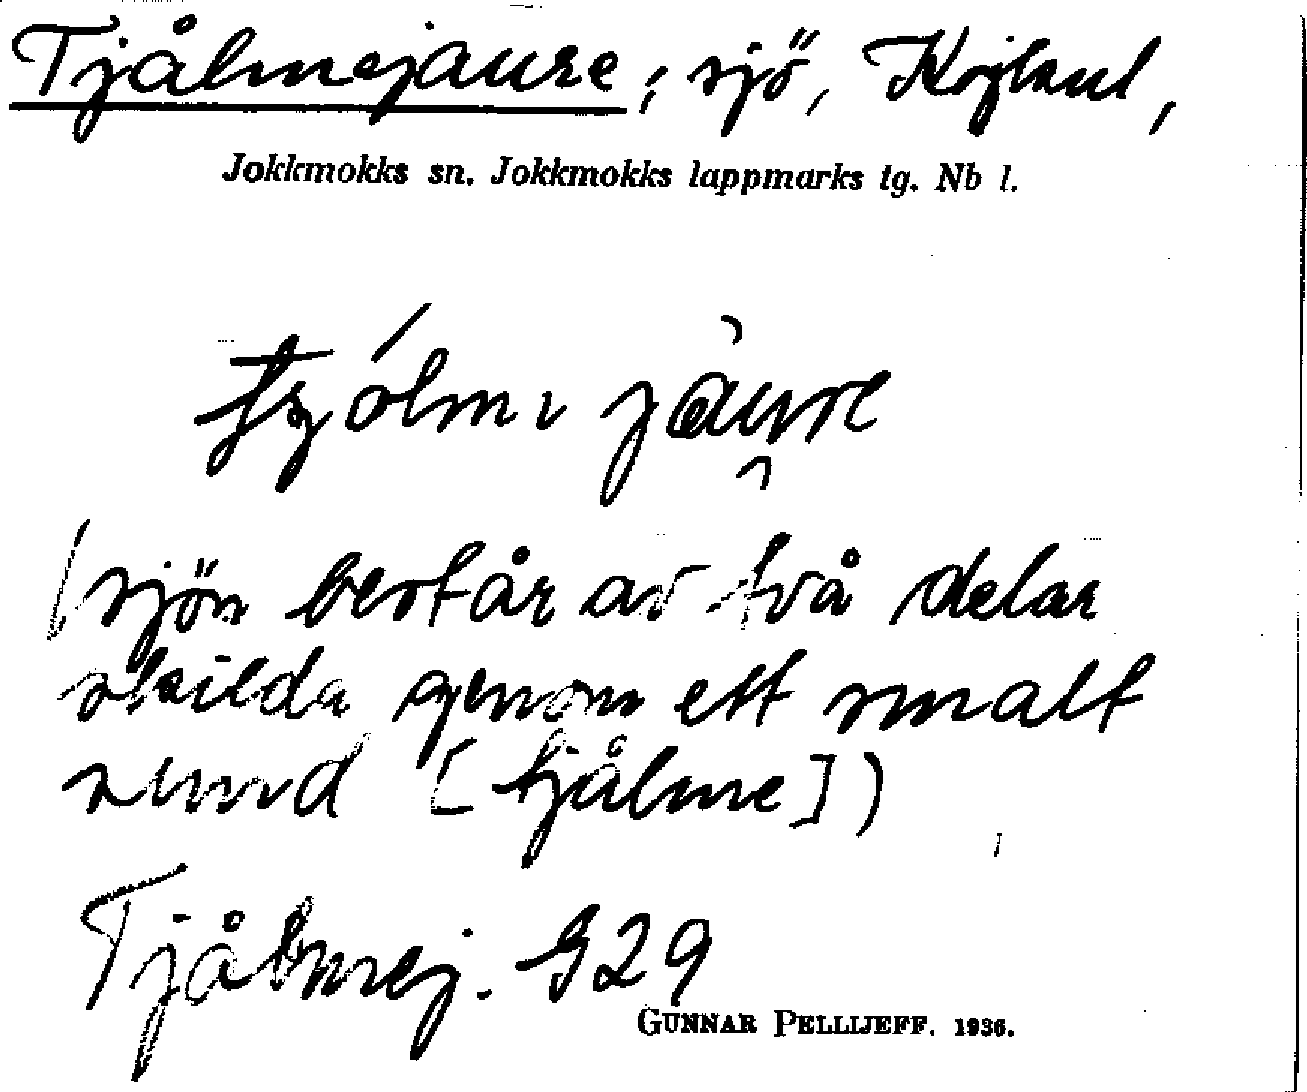 Tjålmejaure, sjö,
Jokkmokks sn. Jokkmokks lappmarks tg. Nb l.
jaure
(sjön består av två delar
skilda genom ett smalt
sund [tjålme])
Tjålmej. G29
GUNNAR PELLIJEFF. 1936.